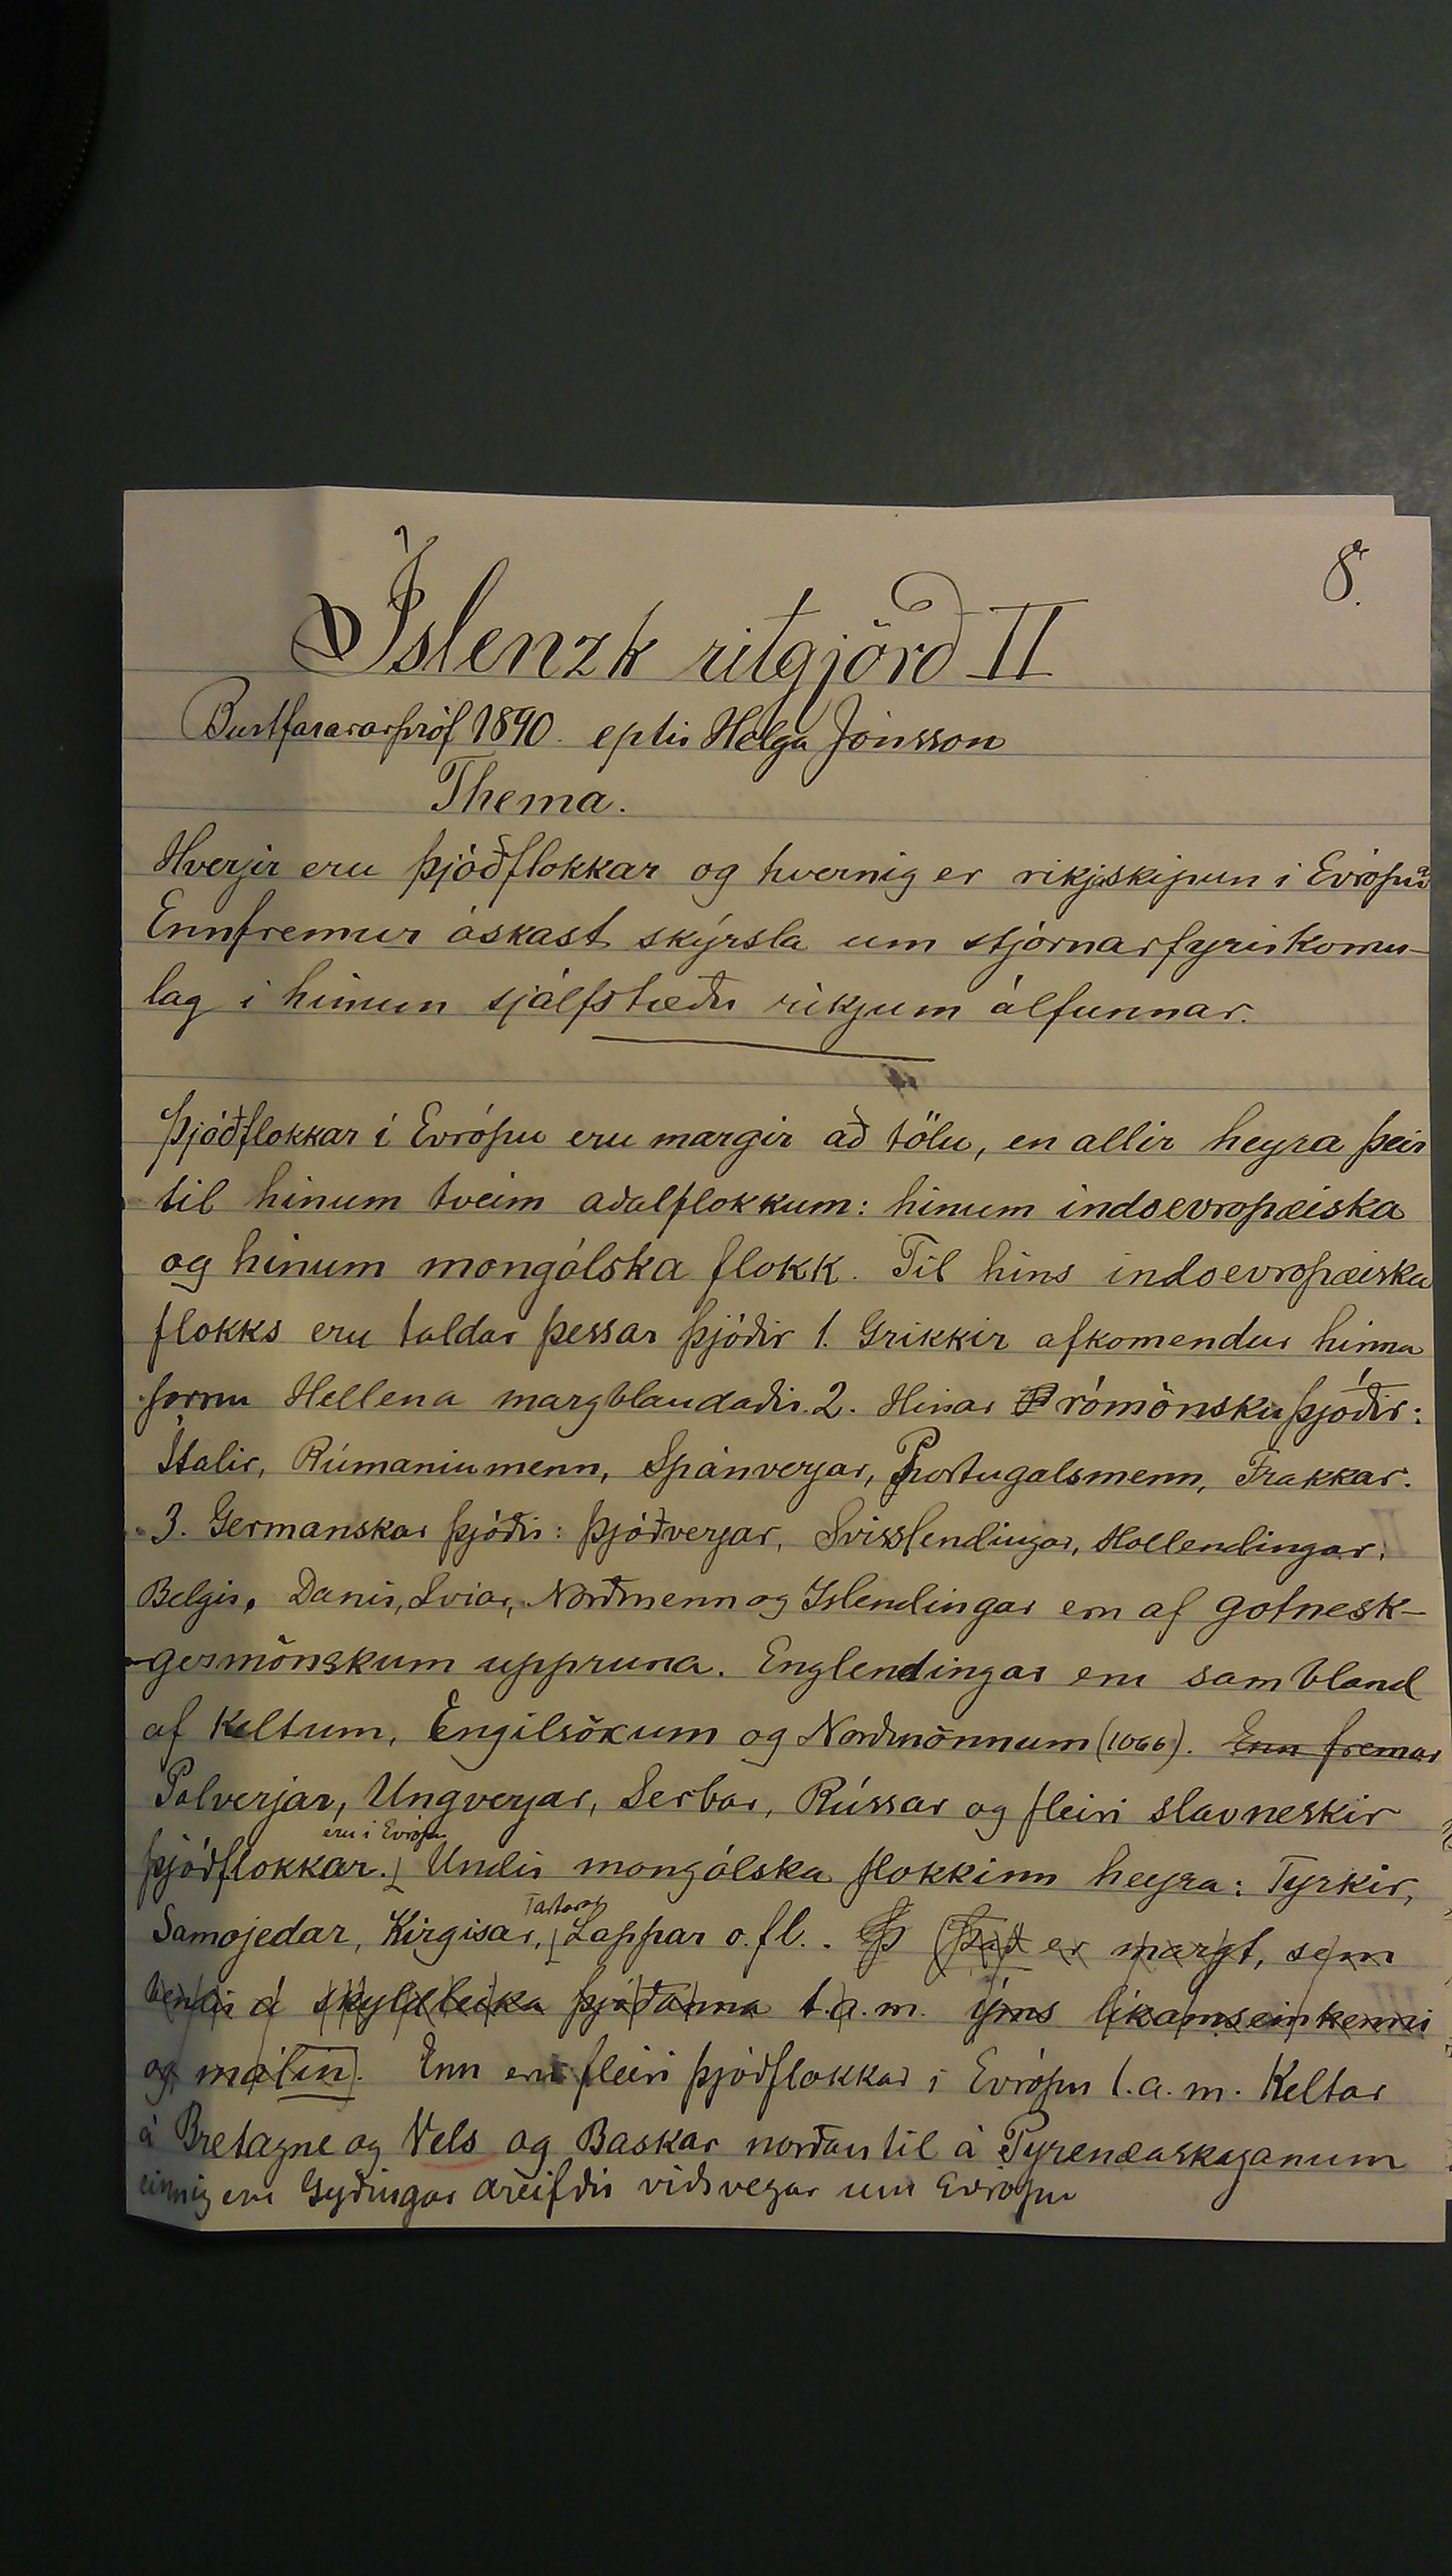 8.
Íslenzk ritgjörð II
Burtfararpróf 1890. eptir Helga Jónsson
Thema.
Hverjir eru þjóðflokkar og hvernig er rikjaskipun i Evrópu?
Ennfremur óskast skýrsla um stjórnarfyrirkomu-
lag i hinum sjálfstæðu rikjum álfunnar.
Þjóðflokkar í Evrópu eru margir að tölu, en allir heyra þeir
til hinum tveim aðalflokkum: hinum indoevropæiska
og hinum mongólska flokk. Til hins indoevropæiska
flokks eru taldar þessar þjóðir 1. Grikkir afkomendur hinna
fornu Hellena margblandaðir. 2. Hinar rómönsku þjóðir:
Ítalir, Rúmaniumenn, Spánverjar, Portugalsmenn, Frakkar.
3. Germanskar þjóðir: Þjóðverjar, Svisslendingar, Hollendingar,
Belgir, Danir, Sviar, Norðmenn og Islendingar eru af gotnesk-
-germönskum uppruna. Englendingar eru sambland
af Keltum, Engilsöxum og Norðmönnum (1066). Enn fremar
Polverjar, Ungverjar, Serbar, Rússar og fleiri slavneskir
eru i Evrópu
þjóðflokkar. Undir mongólska flokkinn heyra: Tyrkir,
Tartarar
Samojedar, Kirgisar, Lappar o. fl. . Þ (Það er margt, sem
bendir á skyldleika þjóðanna t.a.m. ýms líkamseinkenni
og málin). Enn eru fleiri þjóðflokkar i Evrópu t.a.m. Keltar
á Bretagne og Vels og Baskar norðantil á Pyrenæaskaganum
einnig eru Gyðingar dreifðir viðsvegar um Evrópu